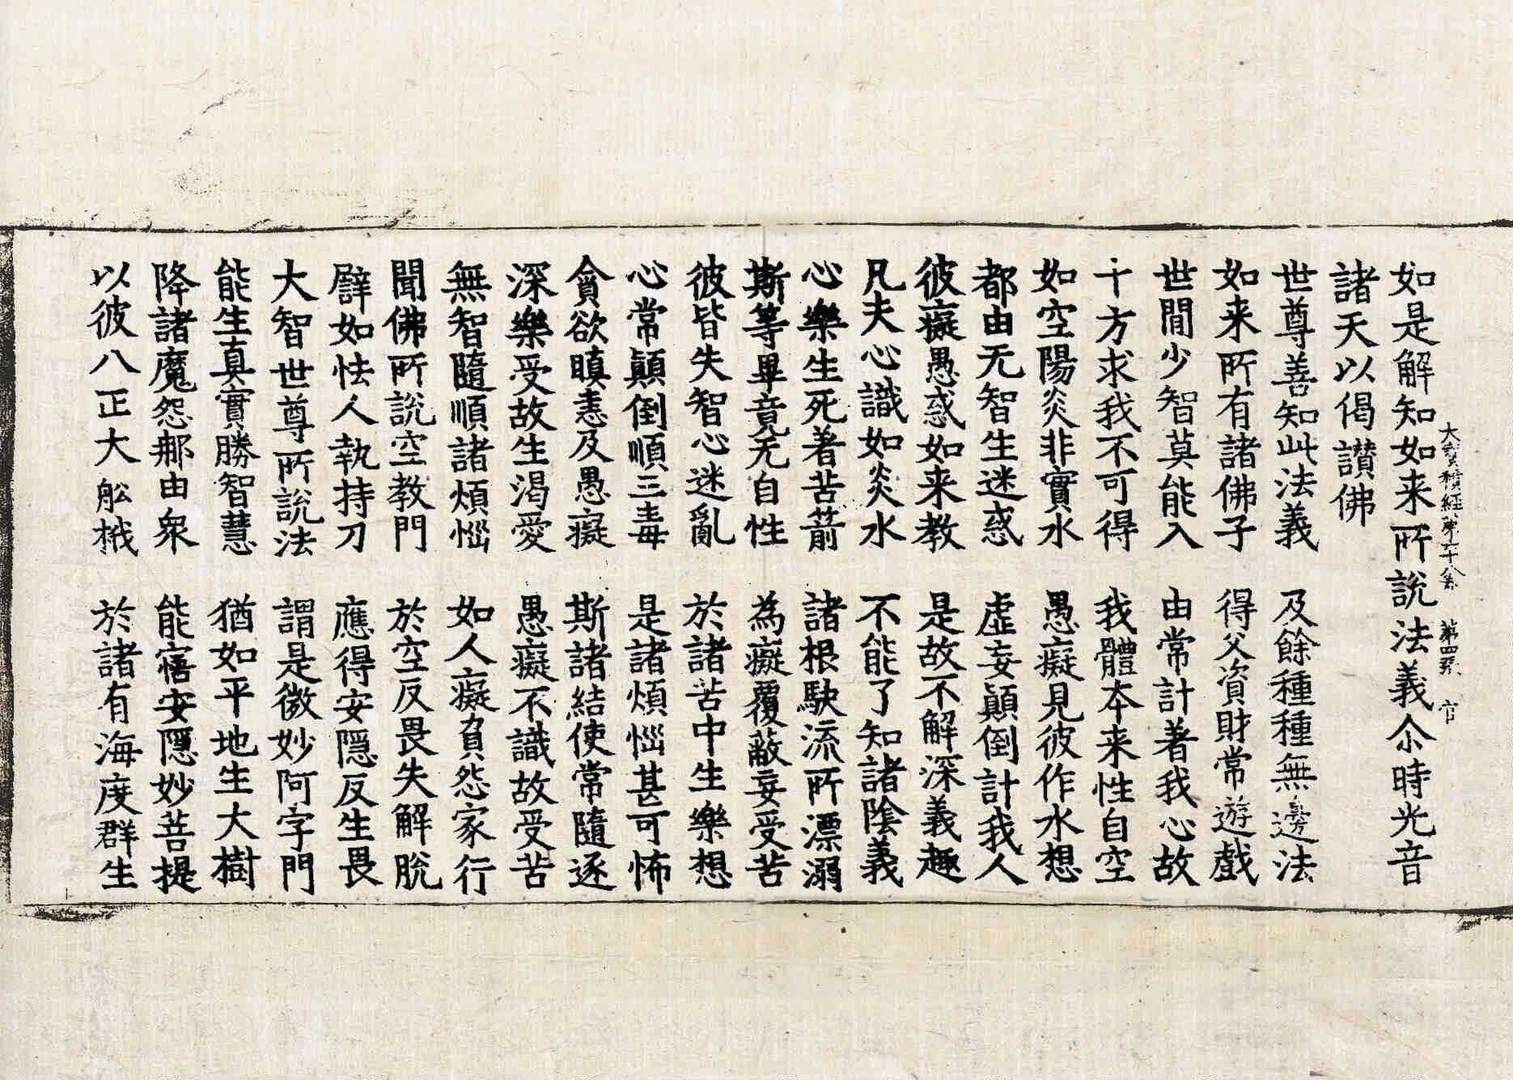 大寳積經第六十八卷　第四張　官
如是解知如来所說法義尒時光音
諸天以偈讃佛
世尊善知此法義　及餘種種無邊法
如来所有諸佛子　得父資財常遊戲
世間少智莫能入　由常計著我心故
十方求我不可得　我體本来性自空
如空陽炎非實水　愚癡見彼作水想
都由无智生迷惑　虛妄顛倒計我人
彼癡愚惑如来教　是故不解深義趣
凡夫心識如炎水　不能了知諸陰義
心樂生死著苦箭　諸根駛流所漂溺
斯等畢竟无自性　為癡覆蔽妄受苦
彼皆失智心迷亂　於諸苦中生樂想
心常顛倒順三毒　是諸煩惱甚可怖
貪欲瞋恚及愚癡　斯諸結使常隨逐
深樂受故生渴愛　愚癡不識故受苦
無智隨順諸煩惱　如人癡負怨家行
聞佛所說空教門　於空反畏失解脫
譬如怯人執持刀　應得安隱反生畏
大智世尊所說法　謂是微妙阿字門
能生真實勝智慧　猶如平地生大樹
降諸魔怨郍由衆　能寤安隱妙菩提
以彼八正大舩栰　於諸有海度群生